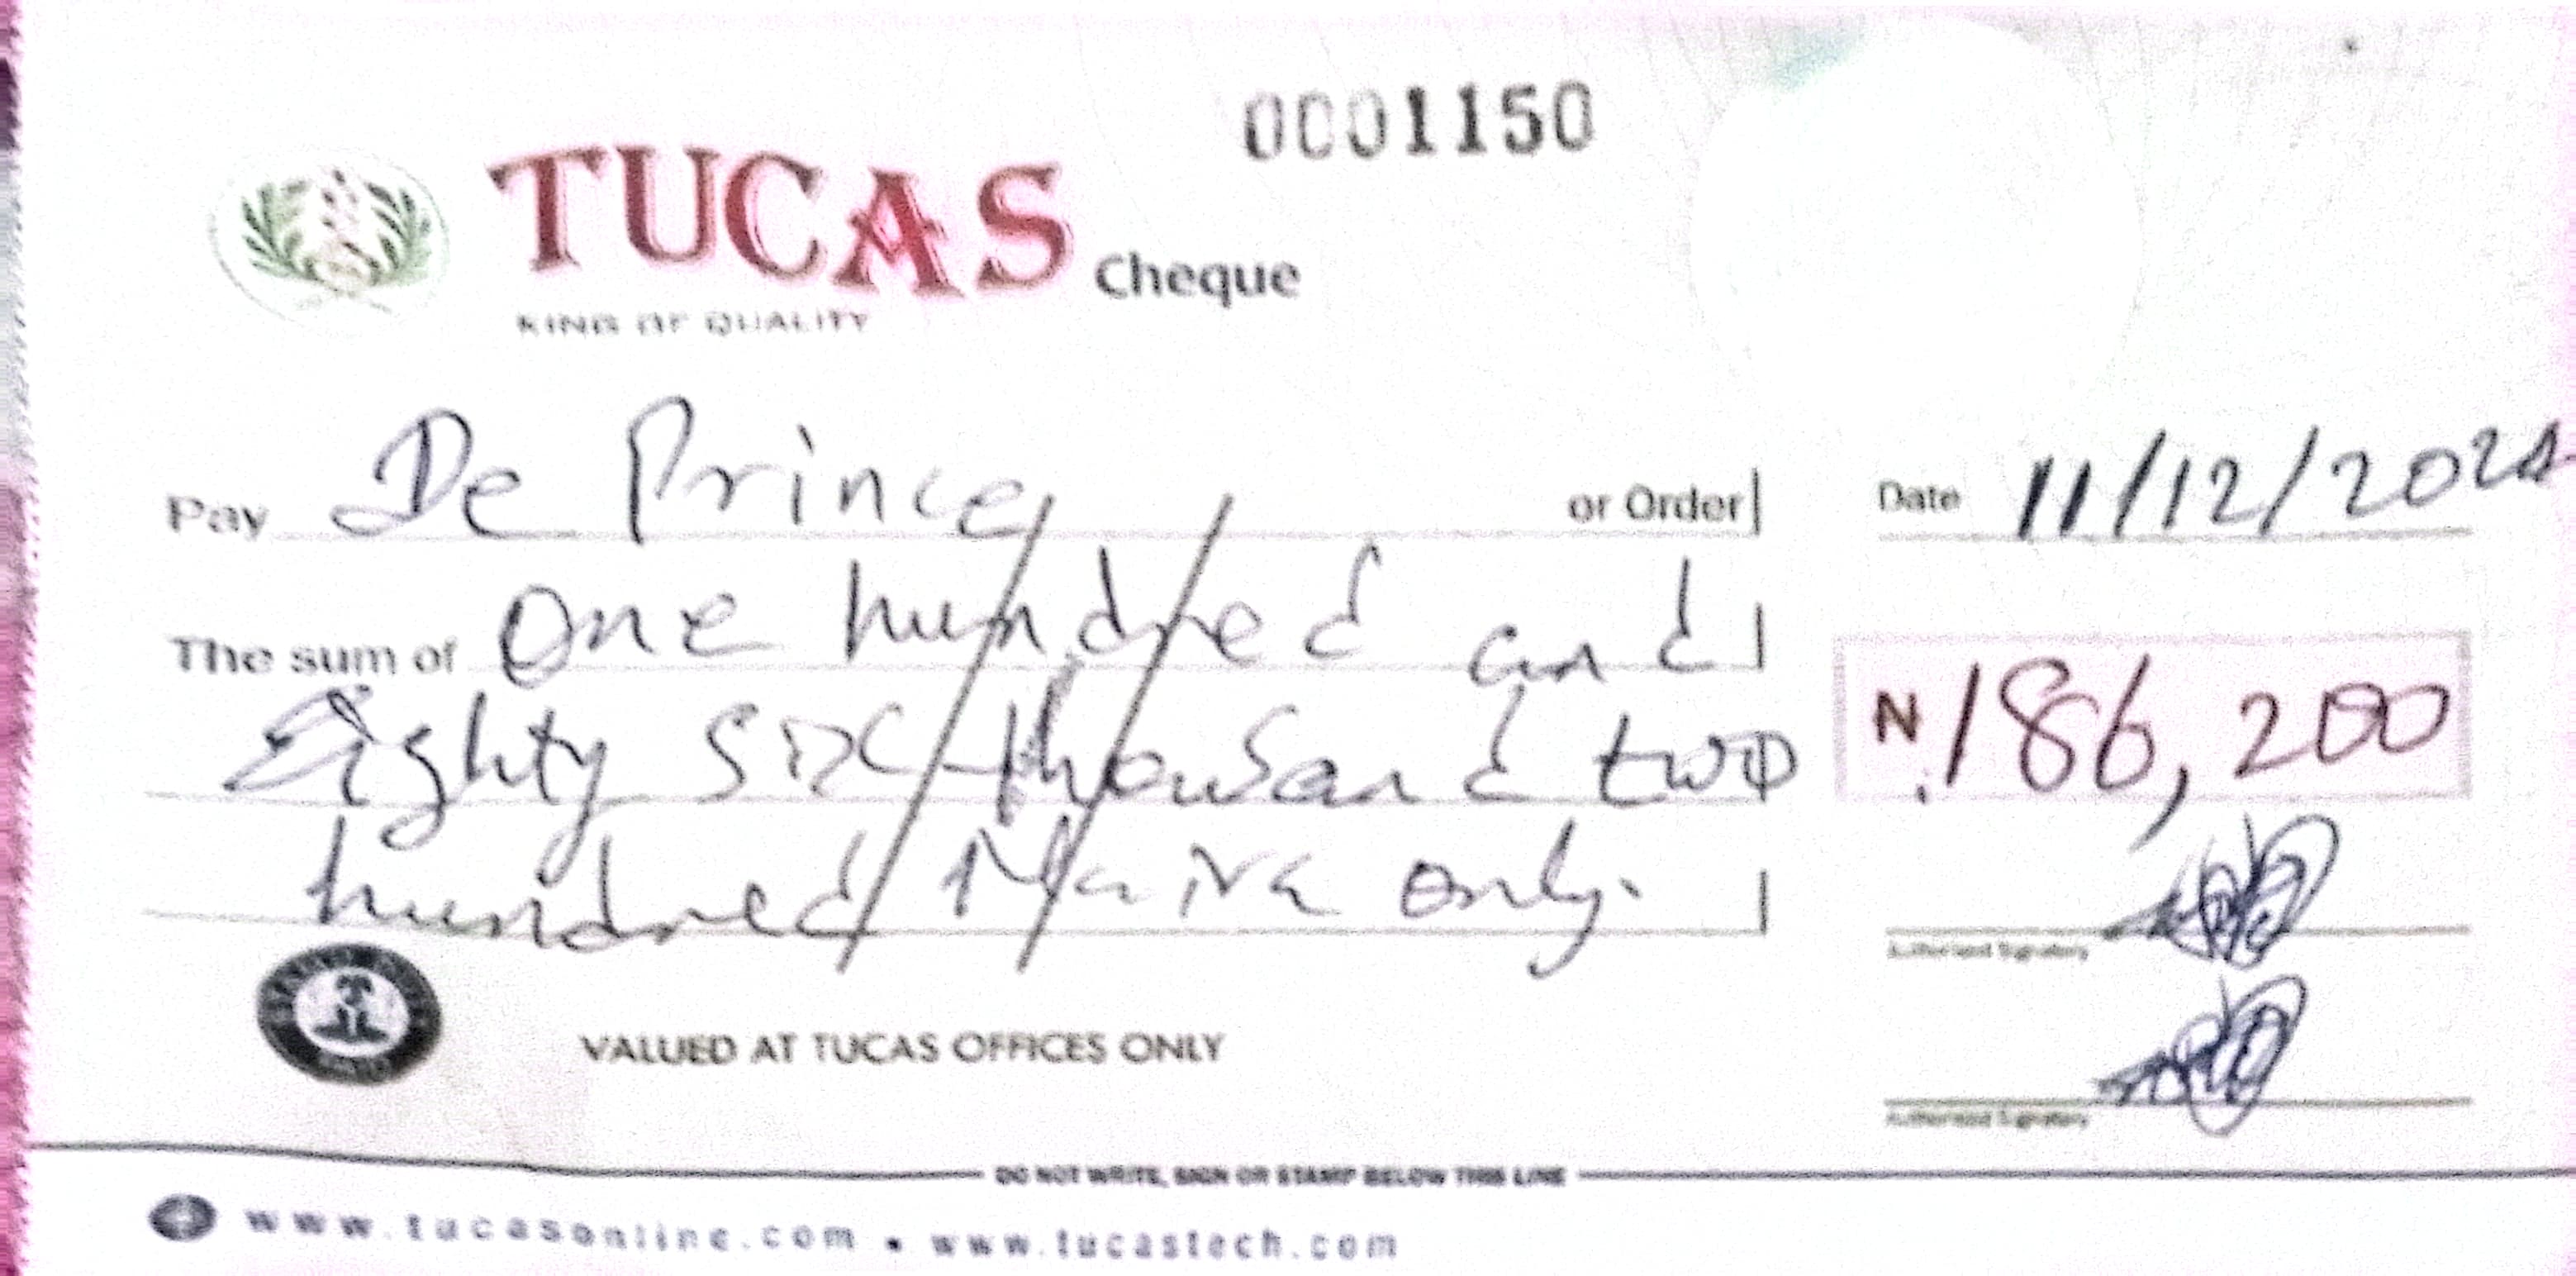 0001150
TUCAS Cheque
KING OF QUALITY
Pay De Prince or Order
Date 11/12/2021
The sum of One hundred and
Eighty six thousand two
₦ 186,200
hundred Naira only.
Authorized Signatory
VALUED AT TUCAS OFFICES ONLY
Authorized Signatory
DO NOT WRITE, SIGN OR STAMP BELOW THIS LINE
www.tucasonline.com • www.tucastech.com